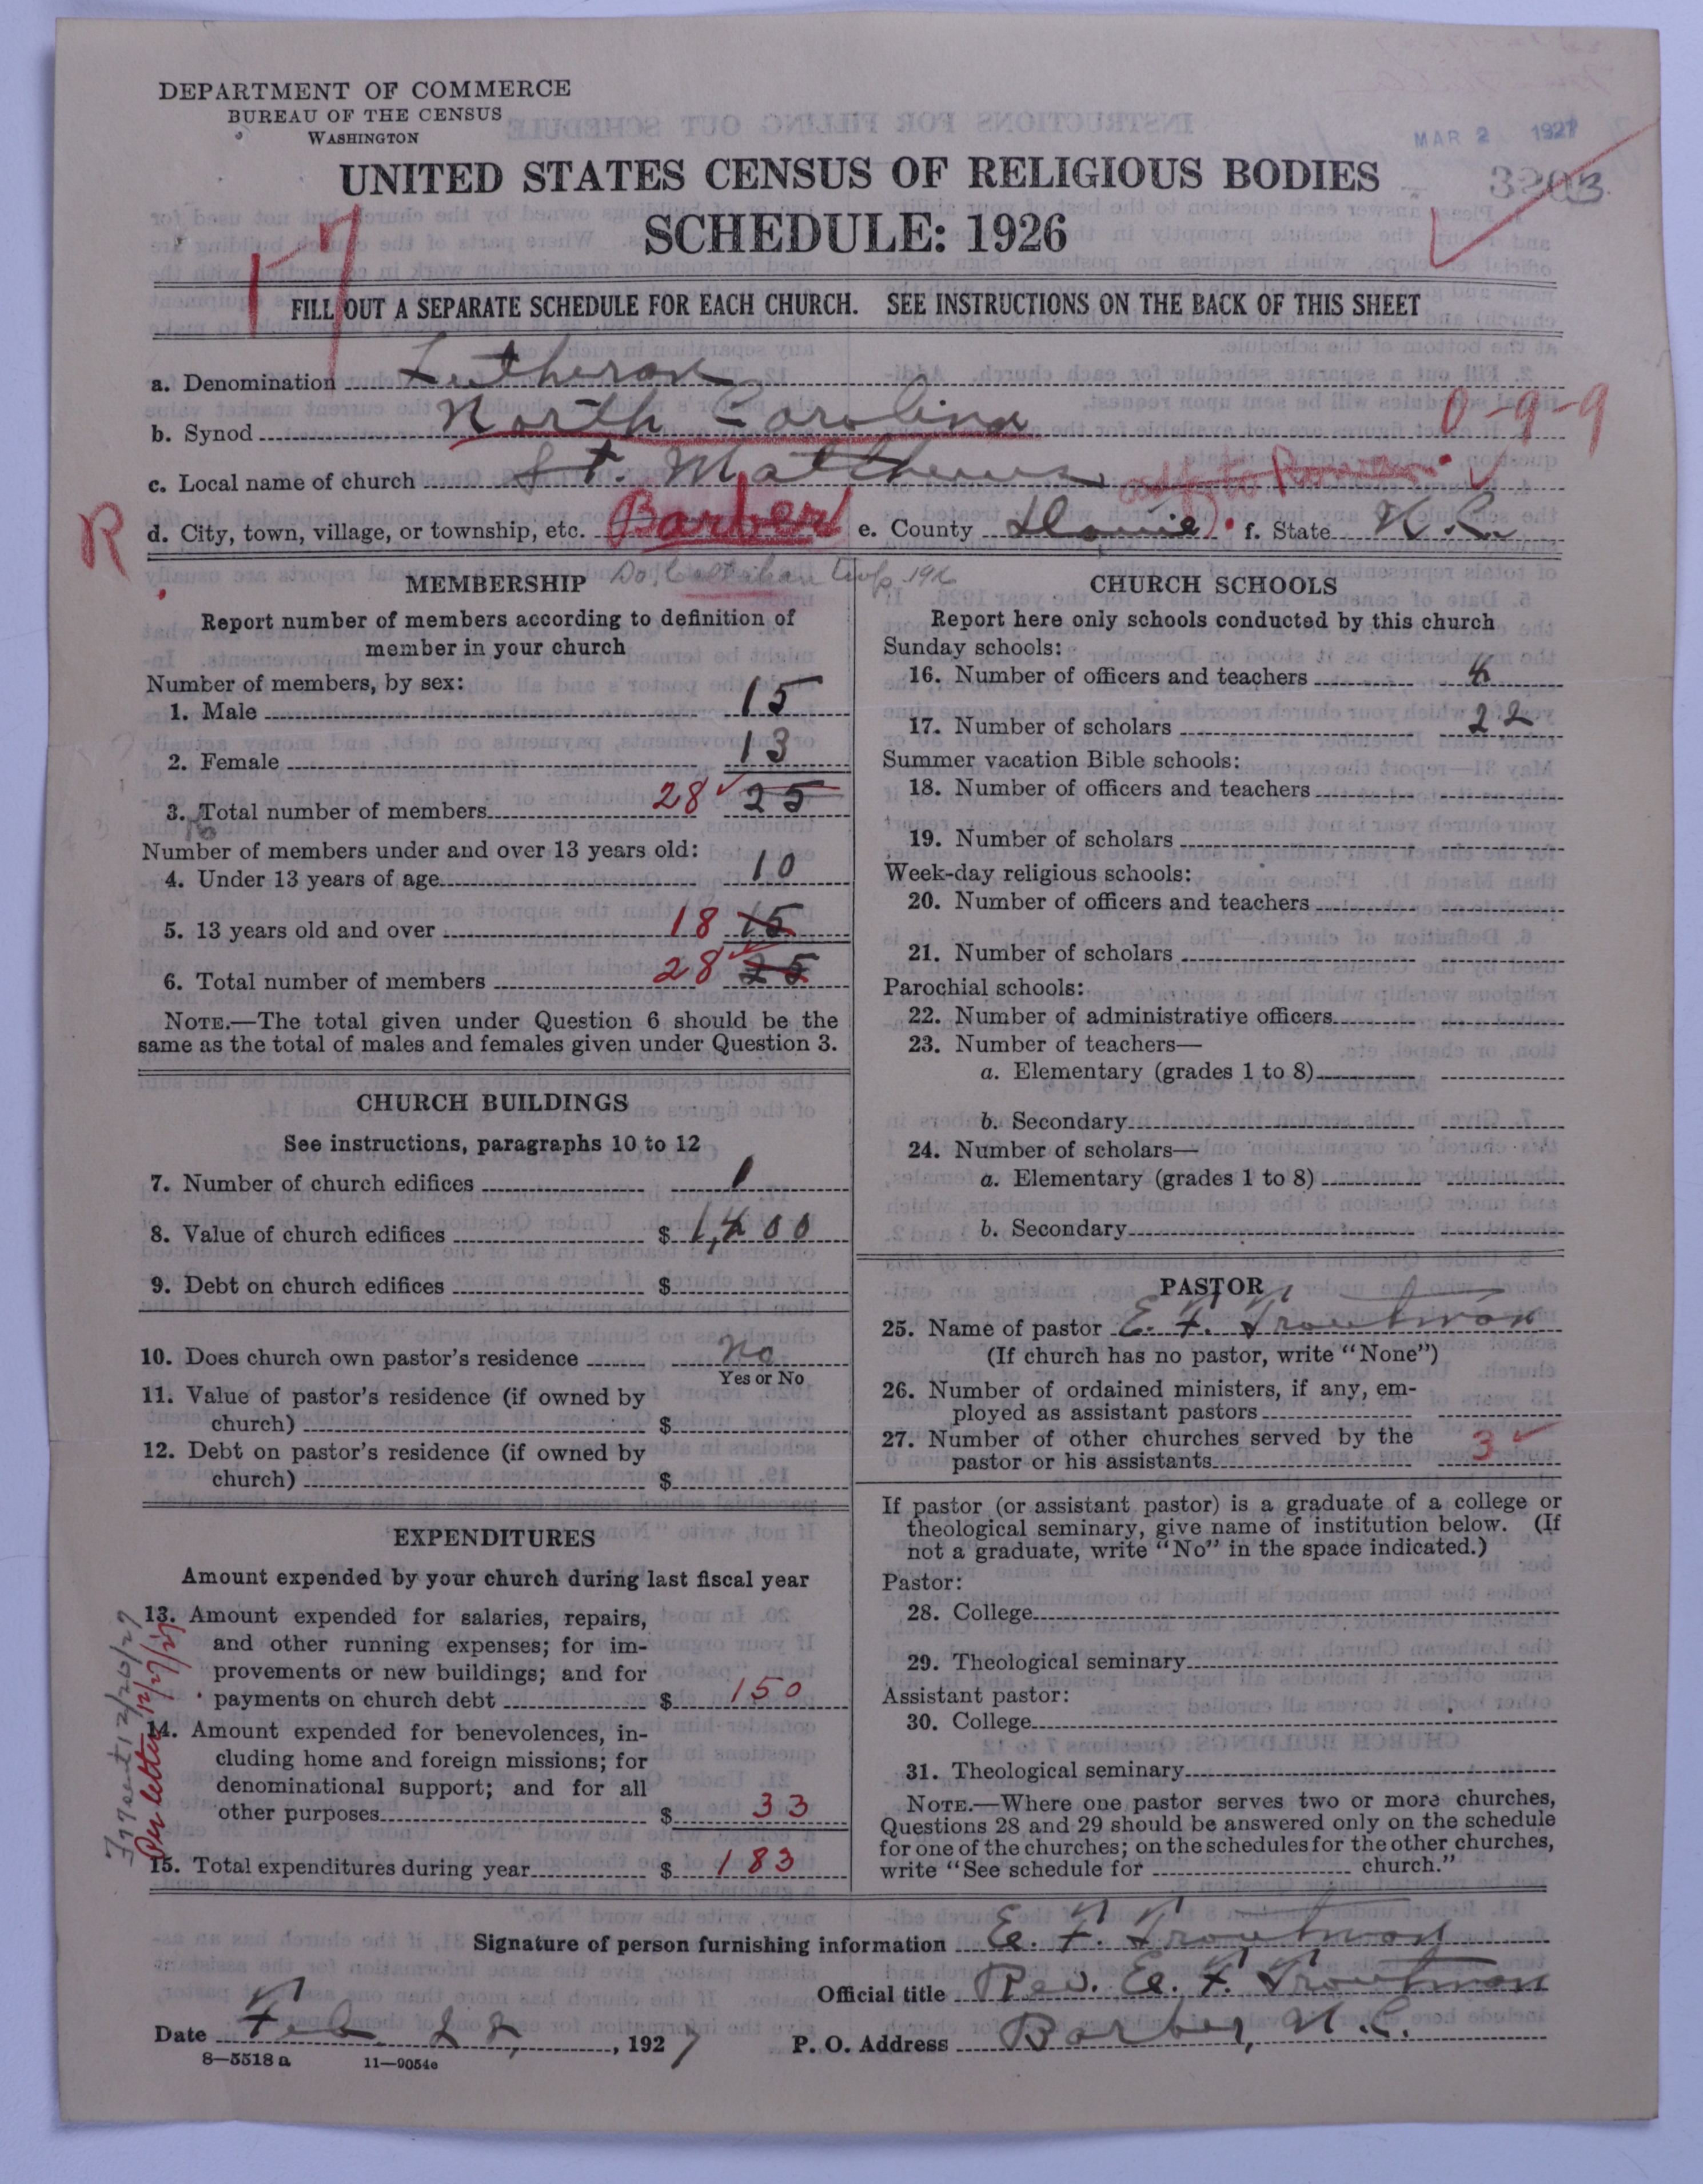 DEPARTMENT OF COMMERCE
BUREAU OF THE CENSUS
WASHINGTON
MAR 2 1927
UNITED STATES CENSUS OF RELIGIOUS BODIES
3203
SCHEDULE: 1926
17
FILL OUT A SEPARATE SCHEDULE FOR EACH CHURCH. SEE INSTRUCTIONS ON THE BACK OF THIS SHEET
a. Denomination Lutheran
b. Synod North Carolina
0-9-9
c. Local name of church St. Matthews
adj. to Rowan
R
d. City, town, village, or township, etc. Barber e. County Davie f. State N.C.
MEMBERSHIP
Report number of members according to definition of
member in your church
Number of members, by sex:
1. Male 15
2. Female 13
3. Total number of members 28 25
Number of members under and over 13 years old:
4. Under 13 years of age 10
5. 13 years old and over 18 15
6. Total number of members 28 25
NOTE.—The total given under Question 6 should be the
same as the total of males and females given under Question 3.
CHURCH BUILDINGS
See instructions, paragraphs 10 to 12
7. Number of church edifices 1
8. Value of church edifices $ 1,400
9. Debt on church edifices $
10. Does church own pastor's residence no
Yes or No
11. Value of pastor's residence (if owned by
church) $
12. Debt on pastor's residence (if owned by
church) $
EXPENDITURES
Amount expended by your church during last fiscal year
13. Amount expended for salaries, repairs,
and other running expenses; for im-
provements or new buildings; and for
payments on church debt $ 150
14. Amount expended for benevolences, in-
cluding home and foreign missions; for
denominational support; and for all
other purposes $ 33
15. Total expenditures during year $ 183
sent 12/20/27
Per letter 12/27/27
CHURCH SCHOOLS
Report here only schools conducted by this church
Sunday schools:
16. Number of officers and teachers 4
17. Number of scholars 22
Summer vacation Bible schools:
18. Number of officers and teachers
19. Number of scholars
Week-day religious schools:
20. Number of officers and teachers
21. Number of scholars
Parochial schools:
22. Number of administrative officers
23. Number of teachers—
a. Elementary (grades 1 to 8)
b. Secondary
24. Number of scholars—
a. Elementary (grades 1 to 8)
b. Secondary
PASTOR
25. Name of pastor E. F. Troutman
(If church has no pastor, write "None")
26. Number of ordained ministers, if any, em-
ployed as assistant pastors
27. Number of other churches served by the
pastor or his assistants 3
If pastor (or assistant pastor) is a graduate of a college or
theological seminary, give name of institution below. (If
not a graduate, write "No" in the space indicated.)
Pastor:
28. College
29. Theological seminary
Assistant pastor:
30. College
31. Theological seminary
NOTE.—Where one pastor serves two or more churches,
Questions 28 and 29 should be answered only on the schedule
for one of the churches; on the schedules for the other churches,
write "See schedule for church."
Signature of person furnishing information E. F. Troutman
Official title Rev. E. F. Troutman
Date Feb. 28, 1927 P. O. Address Barber, N.C.
8—5518 a 11—9054c